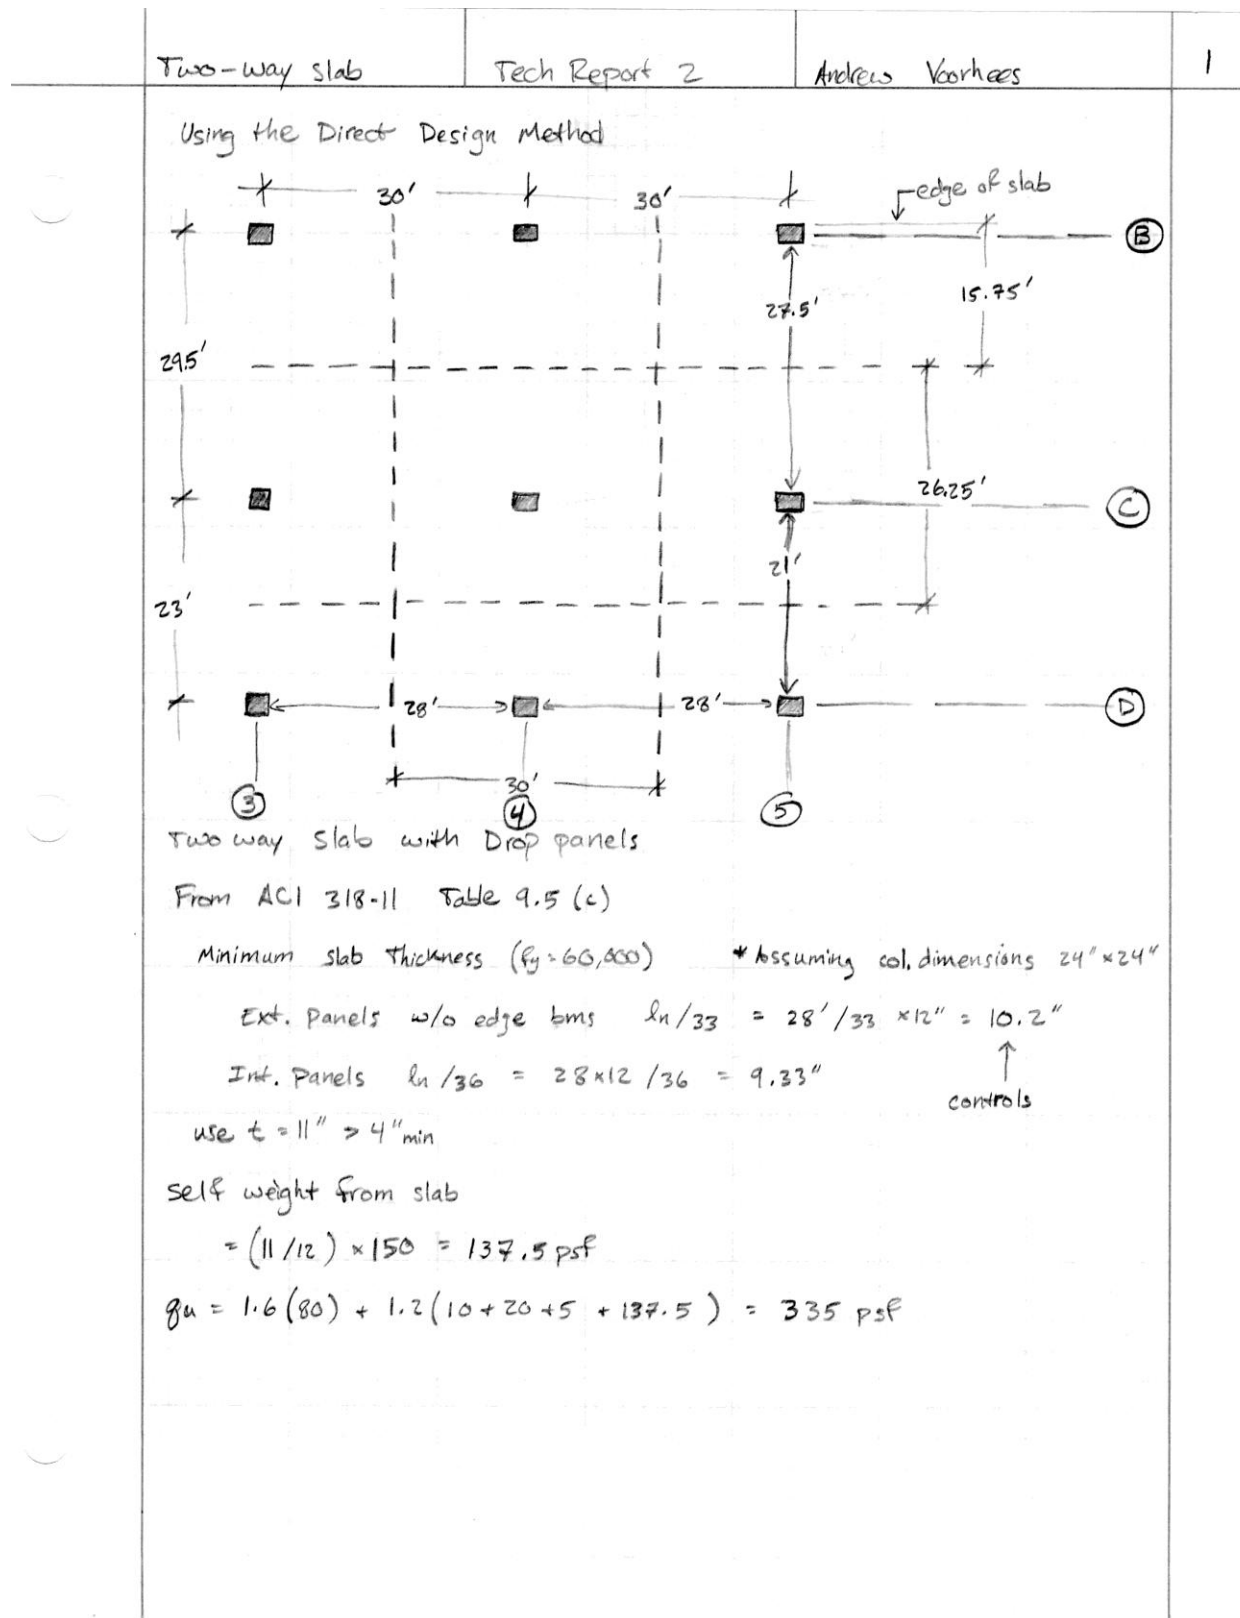 Two-way slab
Tech Report 2
Andrew Voorhees
1
Using the Direct Design Method
30'
30'
edge of slab
B
27.5'
15.75'
29.5'
26.25'
C
21'
23'
28'
28'
D
30'
3
4
5
Two way Slab with Drop panels
From ACI 318-11 Table 9.5 (c)
Minimum slab thickness (fy = 60,000) * Assuming col. dimensions 24" x 24"
Ext. Panels w/o edge bms ln/33 = 28'/33 x12" = 10.2"
Int. Panels ln/36 = 28x12/36 = 9.33"
controls
use t = 11" > 4" min
self weight from slab
= (11/12) x 150 = 137.5 psf
qu = 1.6(80) + 1.2(10+20+5 +137.5) = 335 psf